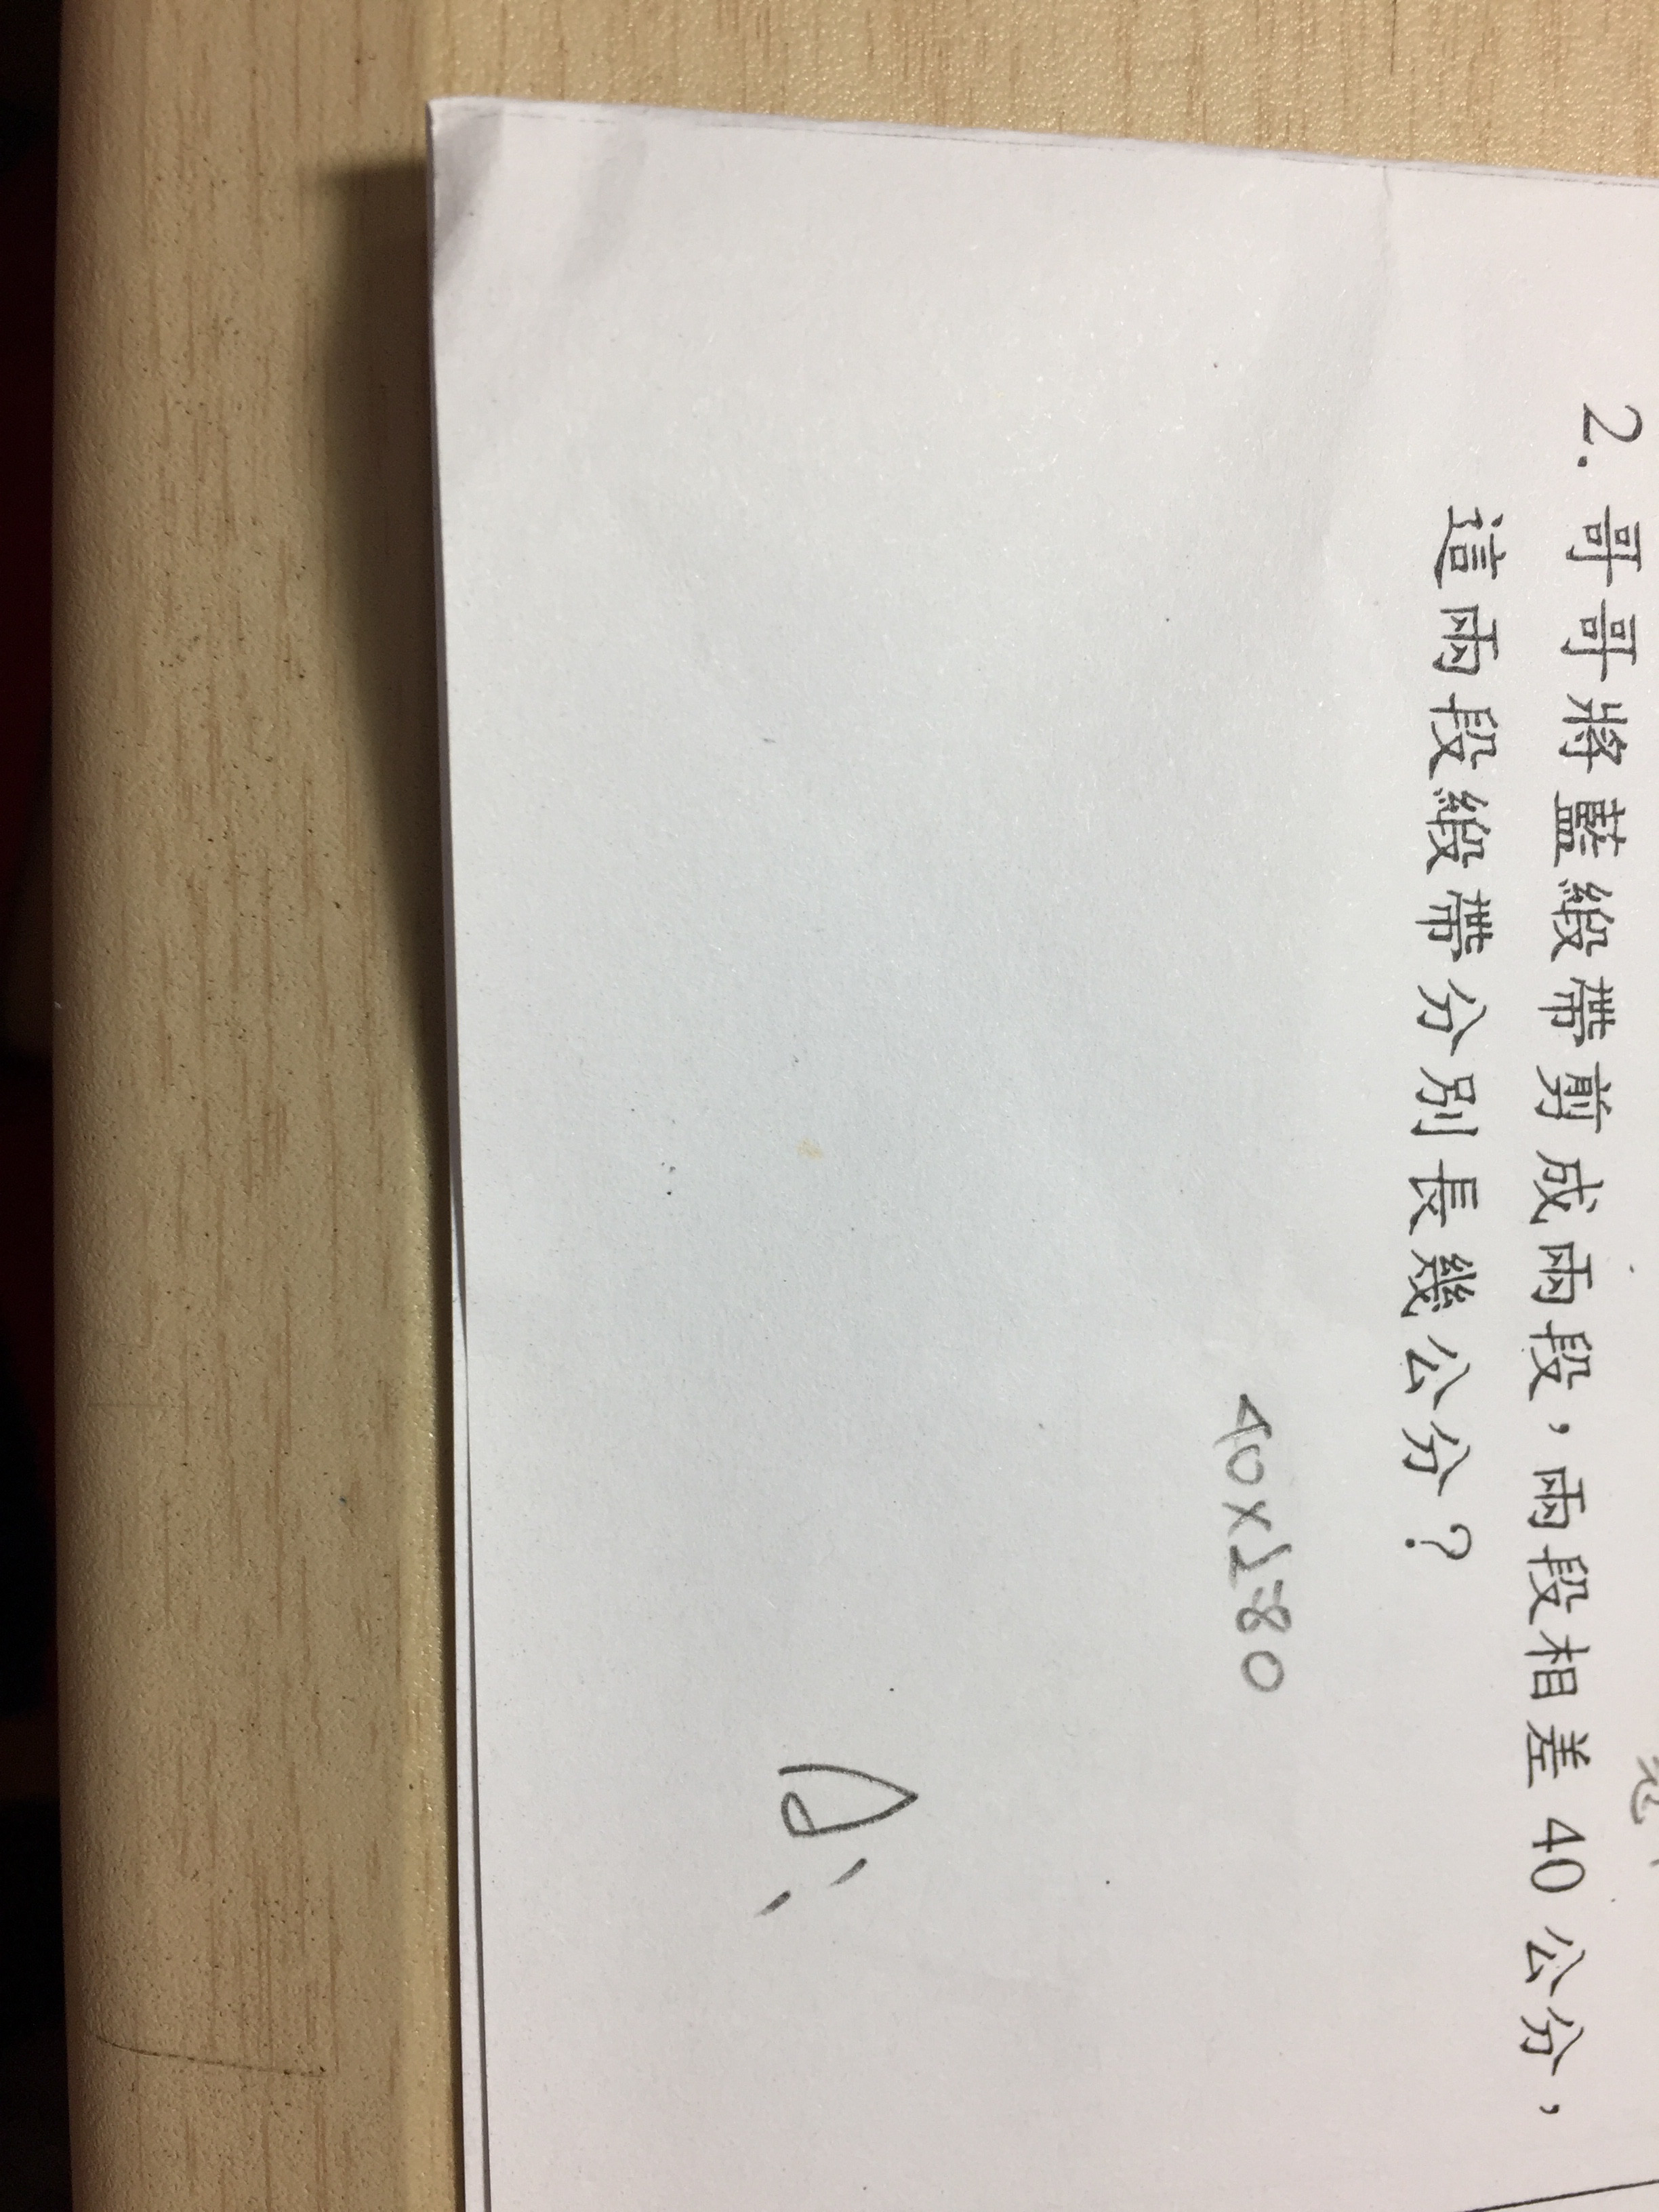 2. 哥哥將藍緞帶剪成兩段，兩段相差 40 公分，
這兩段緞帶分別長幾公分？
40×2=80
A: